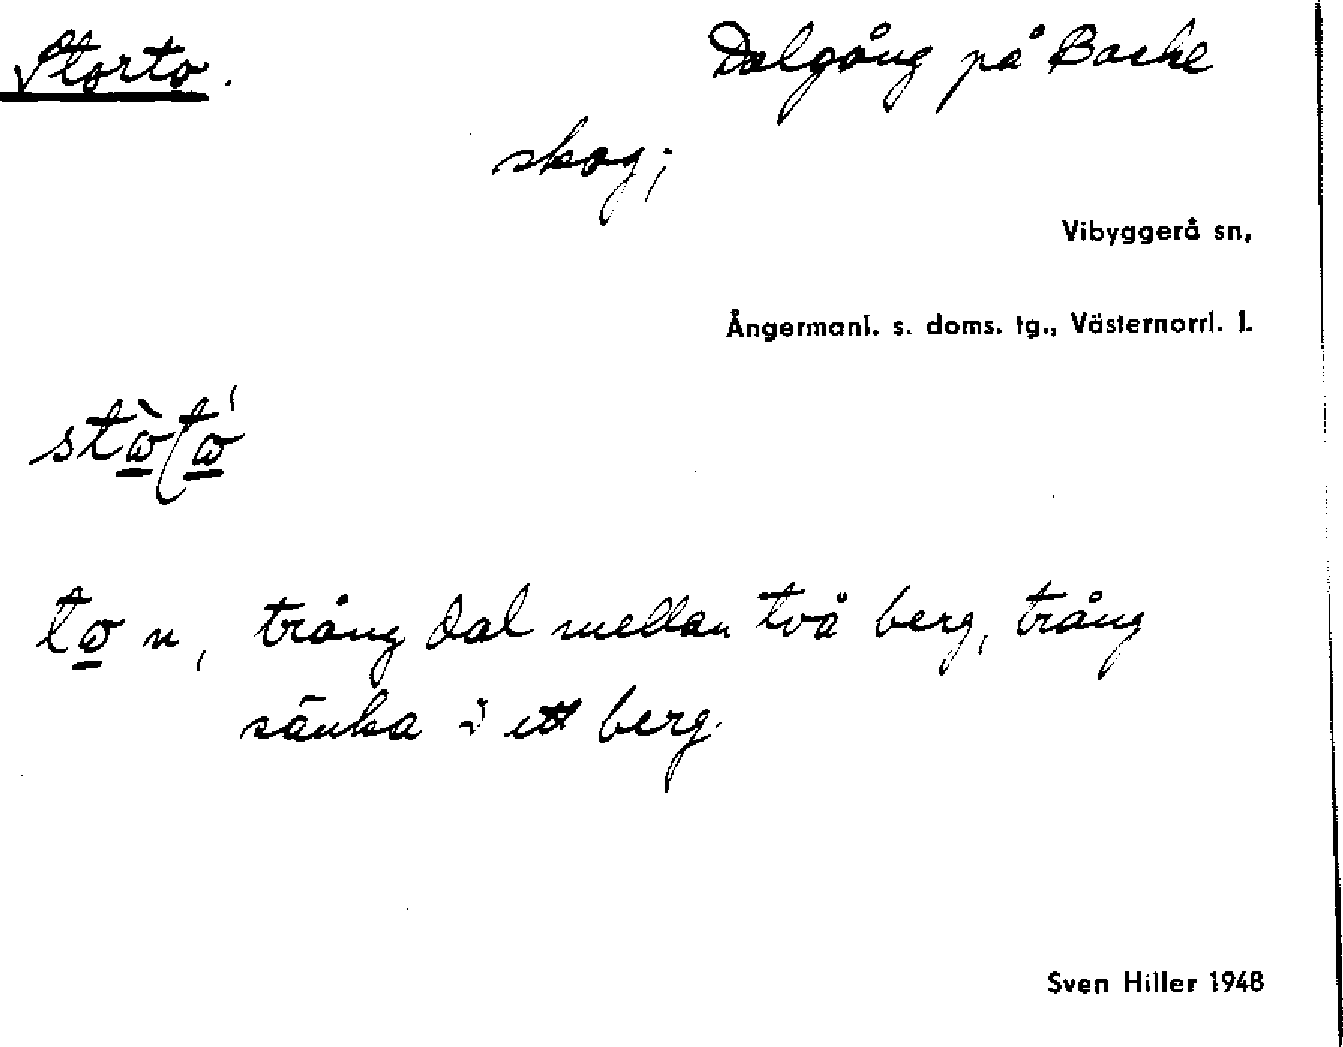 Storto.
Dalgång på Backe
skog;
Vibyggerå sn,
Ångermanl. s. doms. tg., Västernorrl. l.
to n, trång dal mellan två berg, trång
sänka i ett berg.
Sven Hiller 1948